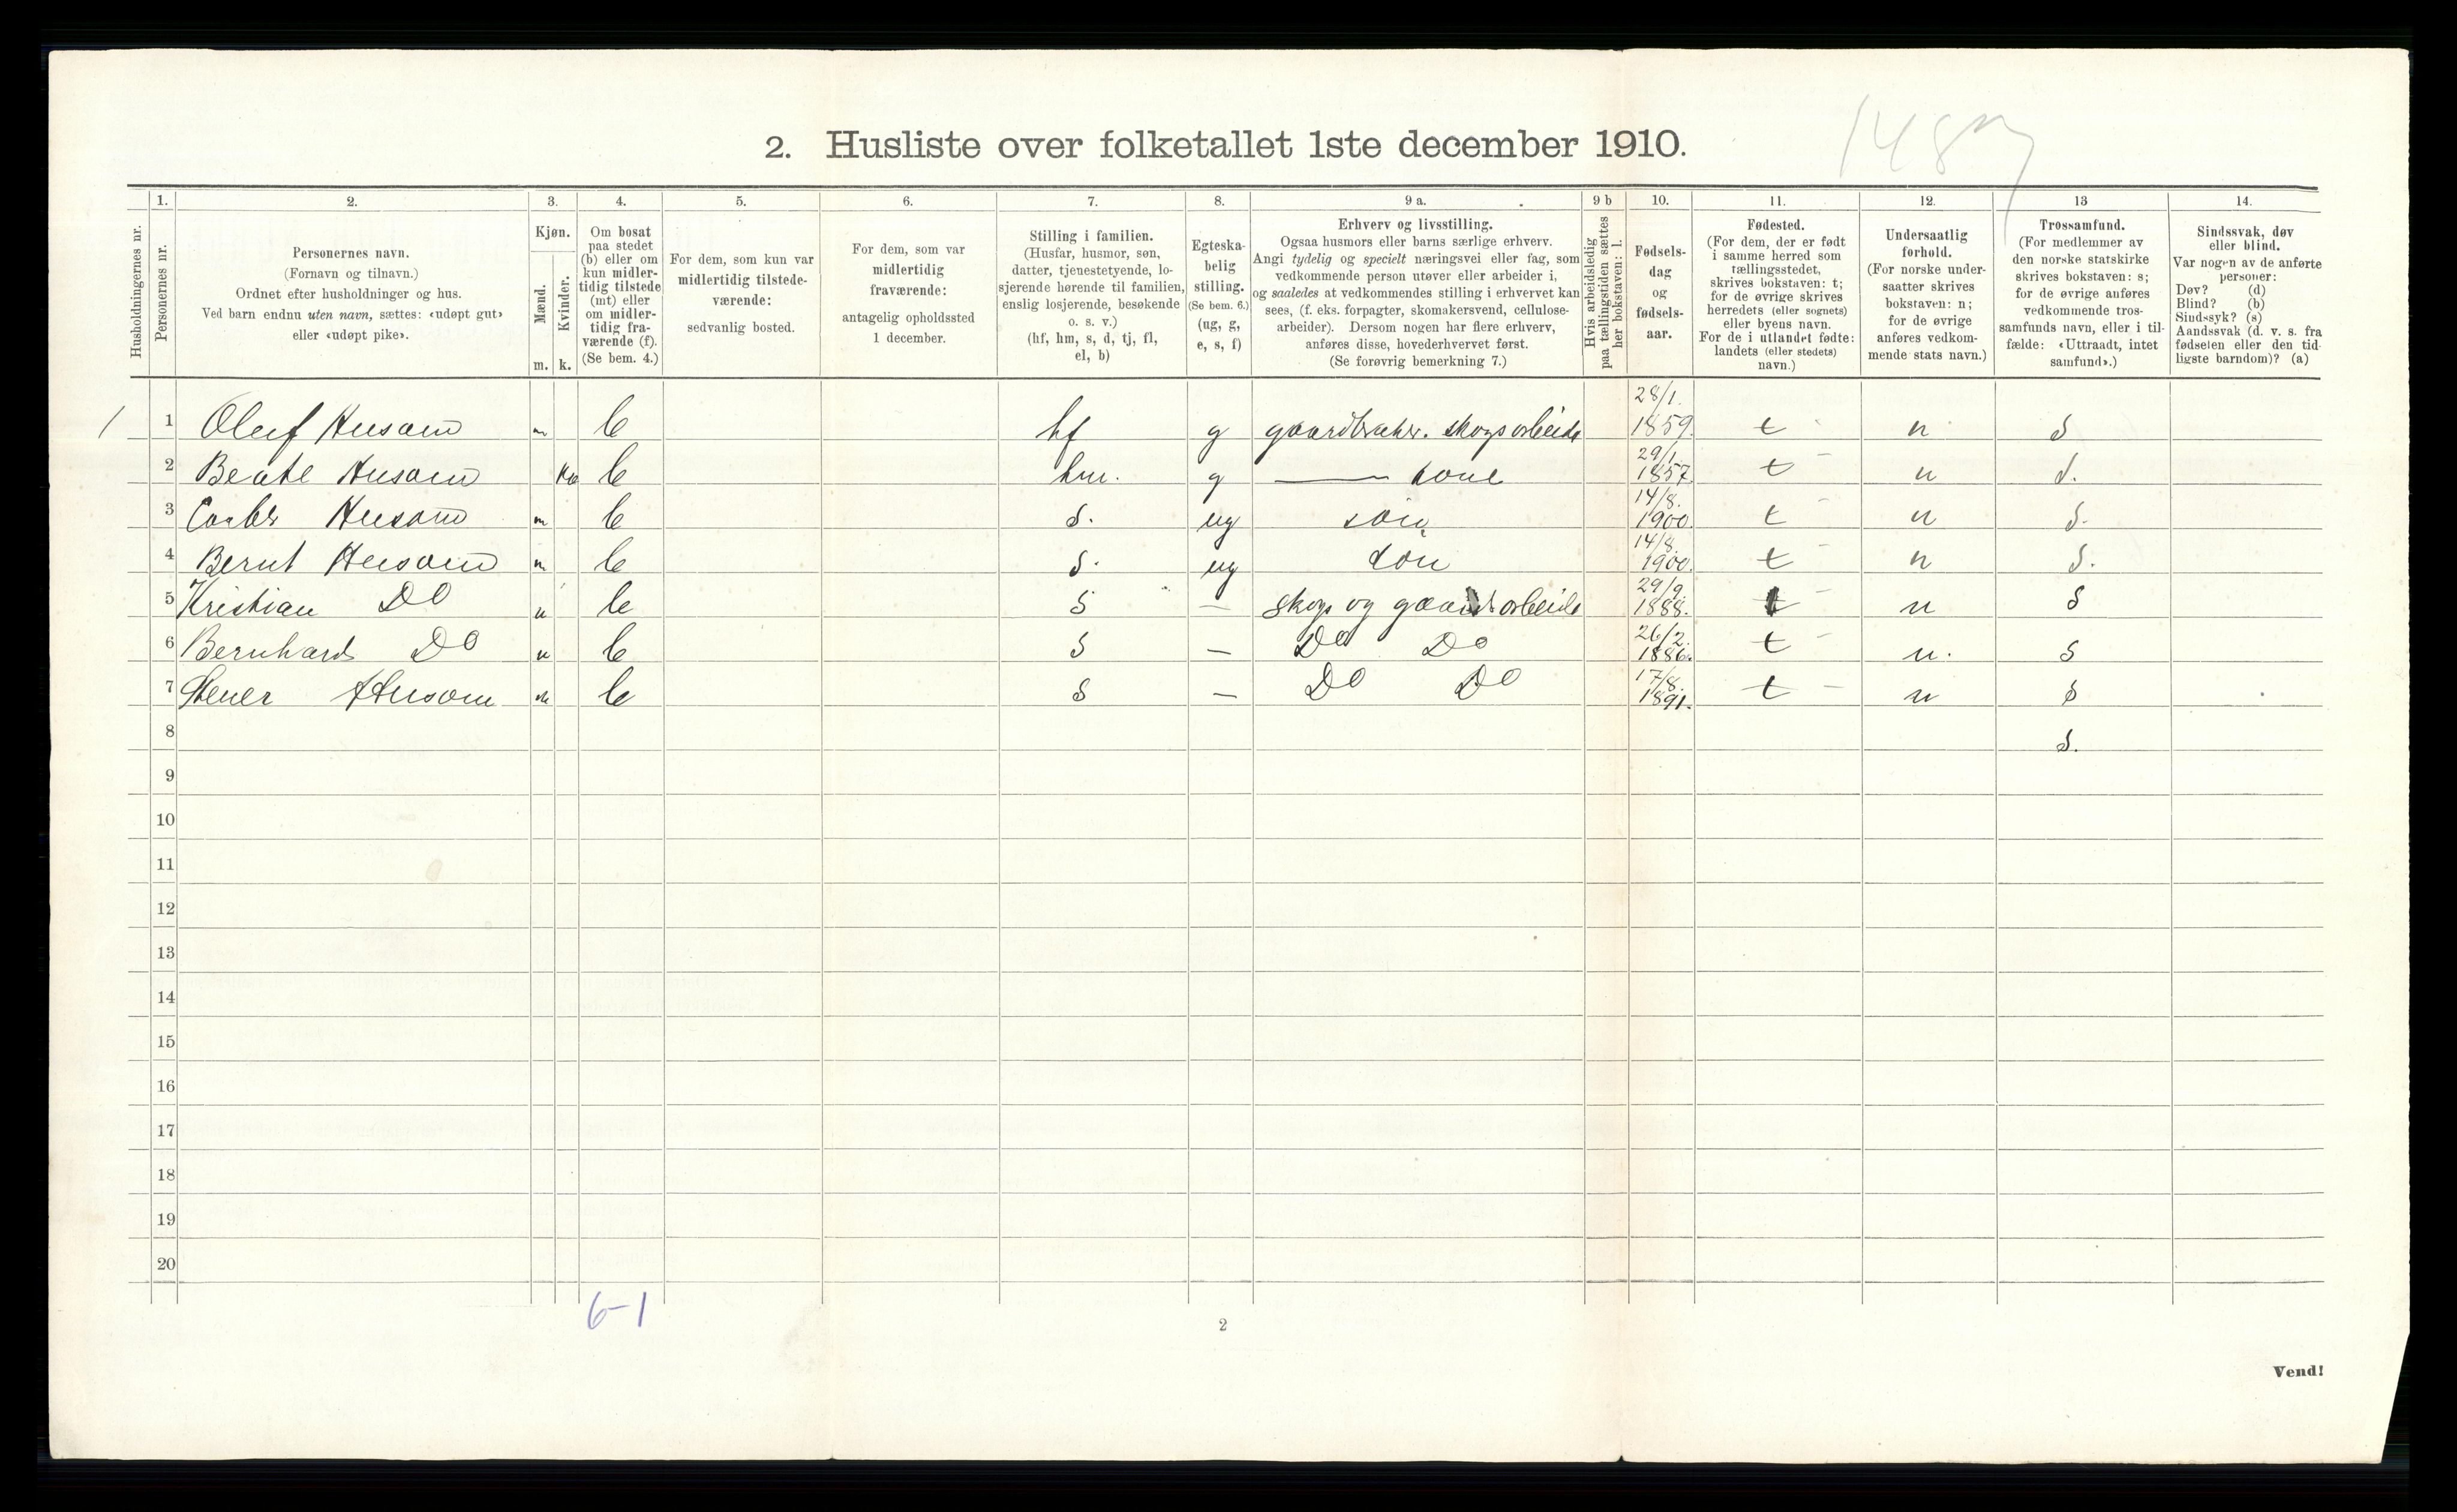 2. Husliste over folketallet 1ste december 1910.
Husholdningernes nr.
1.
Personernes nr.
2.
Personernes navn.
(Fornavn og tilnavn.)
Ordnet efter husholdninger og hus.
Ved barn endnu uten navn, sættes: «udøpt gut»
eller «udøpt pike».
3.
Kjøn.
Mænd.
Kvinder.
m. k.
4.
Om bosat
paa stedet
(b) eller om
kun midler-
tidig tilstede
(mt) eller
om midler-
tidig fra-
værende (f).
(Se bem. 4.)
5.
For dem, som kun var
midlertidig tilstede-
værende:
sedvanlig bosted.
6.
For dem, som var
midlertidig
fraværende:
antagelig opholdssted
1 december.
7.
Stilling i familien.
(Husfar, husmor, søn,
datter, tjenestetyende, lo-
sjerende hørende til familien,
enslig losjerende, besøkende
o. s. v.)
(hf, hm, s, d, tj, fl,
el, b)
8.
Egteska-
belig
stilling.
(Se bem. 6.)
(ug, g,
e, s, f)
9 a.
Erhverv og livsstilling.
Ogsaa husmors eller barns særlige erhverv.
Angi tydelig og specielt næringsvei eller fag, som
vedkommende person utøver eller arbeider i,
og saaledes at vedkommendes stilling i erhvervet kan
sees, (f. eks. forpagter, skomakersvend, cellulose-
arbeider). Dersom nogen har flere erhverv,
anføres disse, hovederhvervet først.
(Se forøvrig bemerkning 7.)
9 b
Hvis arbeidsledig
paa tællingstiden sættes
her bokstaven: l.
10.
Fødsels-
dag
og
fødsels-
aar.
11.
Fødested.
(For dem, der er født
i samme herred som
tællingsstedet,
skrives bokstaven: t;
for de øvrige skrives
herredets (eller sognets)
eller byens navn.
For de i utlandet fødte:
landets (eller stedets)
navn.)
12.
Undersaatlig
forhold.
(For norske under-
saatter skrives
bokstaven: n;
for de øvrige
anføres vedkom-
mende stats navn.)
13
Trossamfund.
(For medlemmer av
den norske statskirke
skrives bokstaven: s;
for de øvrige anføres
vedkommende tros-
samfunds navn, eller i til-
fælde: «Uttraadt, intet
samfund».)
14.
Sindssvak, døv
eller blind.
Var nogen av de anførte
personer:
Døv? (d)
Blind? (b)
Sindssyk? (s)
Aandssvak (d. v. s. fra
fødselen eller den tid-
ligste barndom)? (a)
1 1 Oluf Husom m b hf g gaardbruker. skogsarbeide 28/1. 1859. t n s
2 Beate Husom k b hm. g — kone 29/1. 1857. t n s.
3 Husom m b s. ug søn 14/8. 1900. t n s.
4 Bernt Husom m b s. ug søn 14/8. 1900. t n s.
5 Kristian Do m b s — skogs og gaardsarbeide 29/9. 1888. t n s
6 Bernhard Do m b s — Do Do 26/2. 1886. t n. s
7 Husom m b s — Do Do 17/8. 1891. t n s
8 s.
9
10
11
12
13
14
15
16
17
18
19
20
6-1
2
Vend!